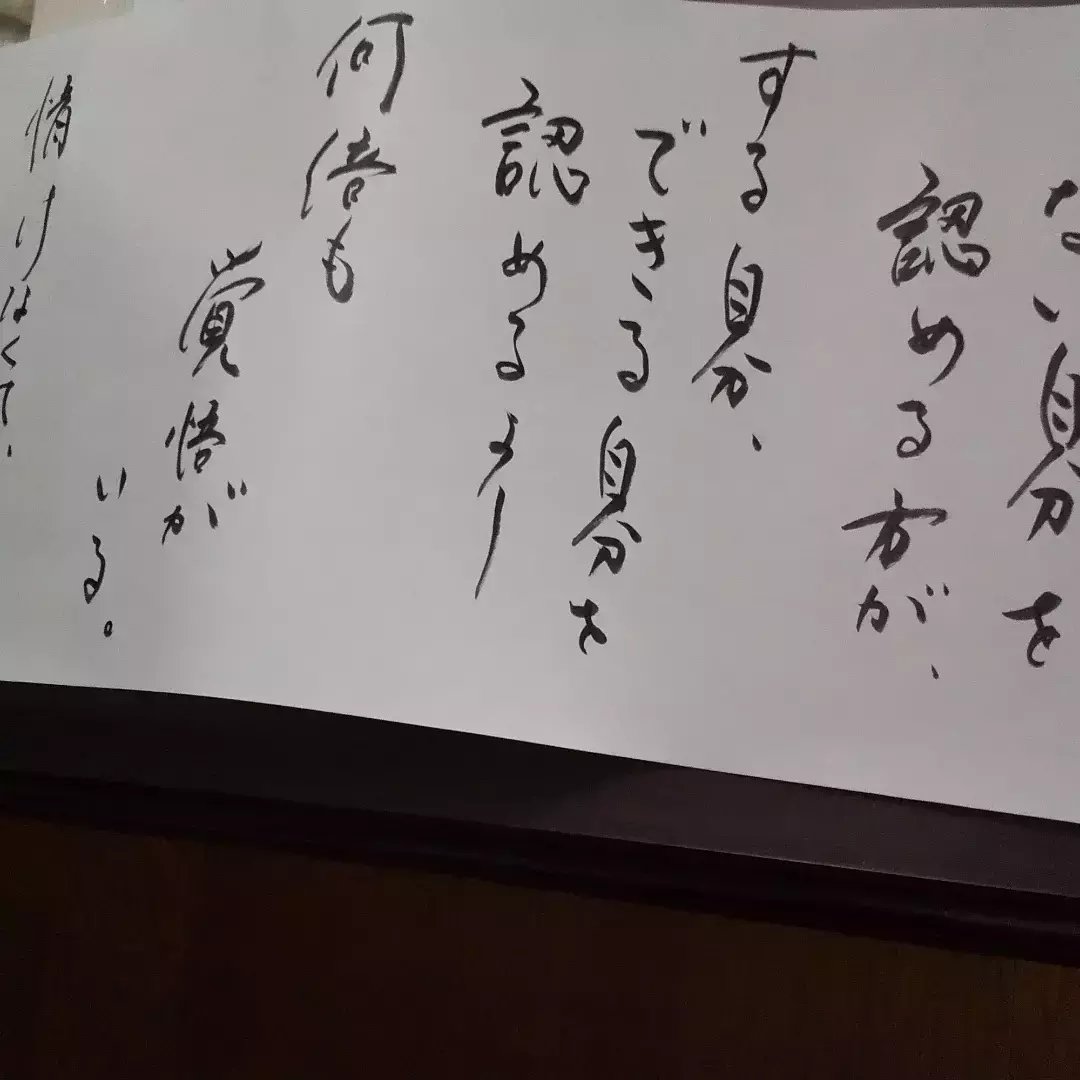 ない自分を
認める方が、
する自分、
できる自分を
認めるより
何倍も
覚悟が
いる。
情けなくて、